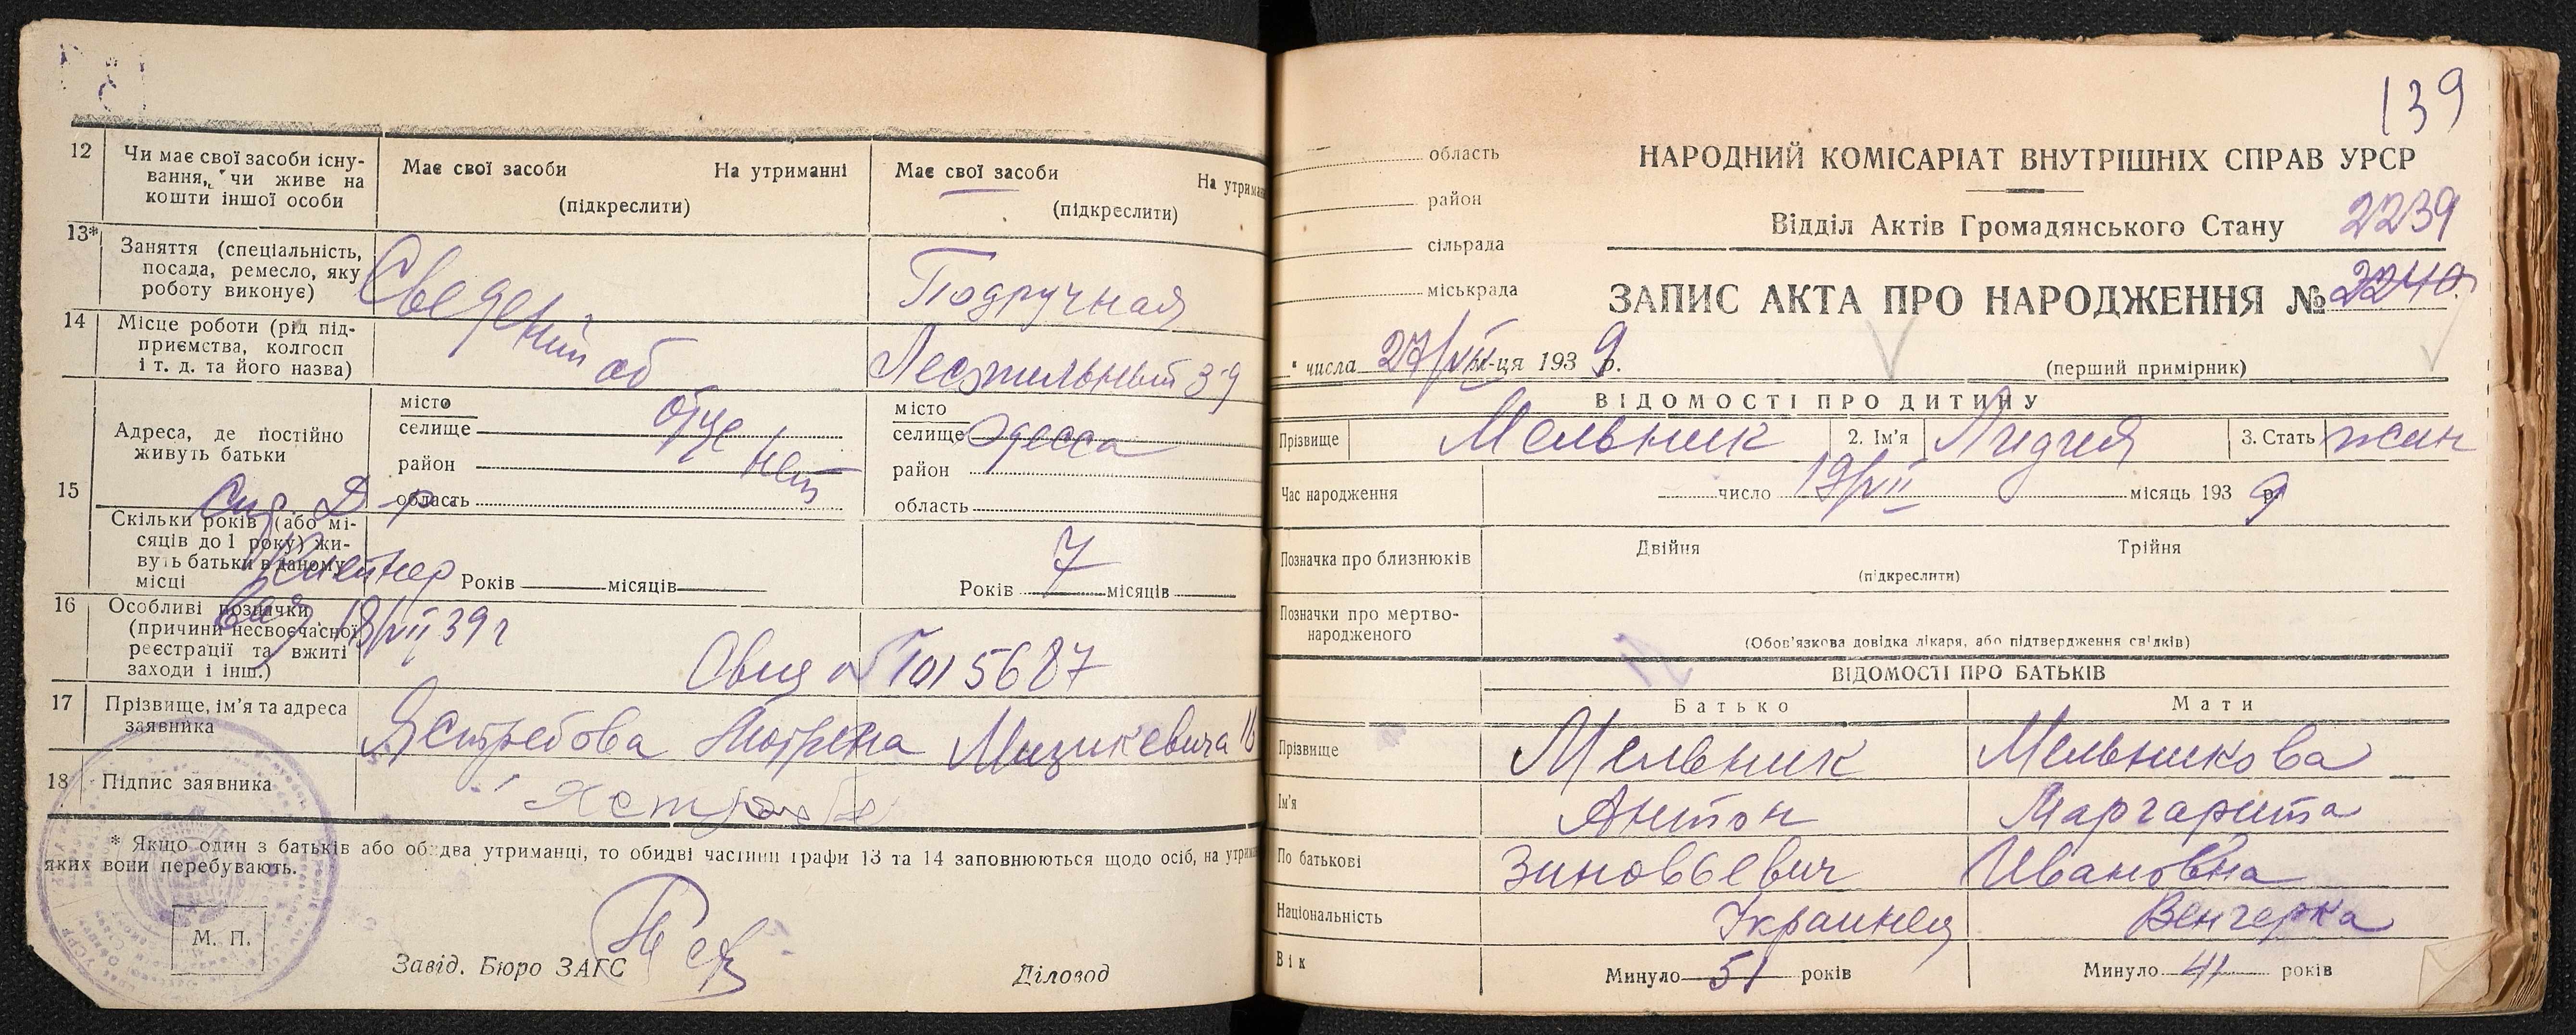 12
Чи має свої засоби існу-
вання, чи живе на
кошти іншої особи
Має свої засоби На утриманні
(підкреслити)
Має свої засоби На утриман
(підкреслити)
13*
Заняття (спеціальність,
посада, ремесло, яку
роботу виконує)
Сведений об отце нет
Подручная
14
Місце роботи (рід під-
приємства, колгосп
і т. д. та його назва)
Лесопильный з-д
15
Адреса, де постійно
живуть батьки
місто
селище
район
область
місто
селище Одесса
район
область
Скільки років (або мі-
сяців до 1 року) жи-
вуть батьки в даному
місці
Років місяців
Років 7 місяців
16
Особливі позначки
(причини несвоєчасної
реєстрації та вжиті
заходи і інш.)
18/VII 39 г
5687
17
Прізвище, ім'я та адреса
заявника
Ястребова Мотрена Мицкевича 16
18
Підпис заявника
* Якщо один з батьків або обидва утриманці, то обидві частини графи 13 та 14 заповнюються щодо осіб, на утриман
яких вони перебувають.
М. П.
Завід. Бюро ЗАГС
Діловод
139
область
район
сільрада
міськрада
НАРОДНИЙ КОМІСАРІАТ ВНУТРІШНІХ СПРАВ УРСР
Відділ Актів Громадянського Стану
2239
ЗАПИС АКТА ПРО НАРОДЖЕННЯ № 2240
числа 27/VII м-ця 1939 р.
(перший примірник)
ВІДОМОСТІ ПРО ДИТИНУ
Прізвище Мельник 2. Ім'я Лидия 3. Стать жен
Час народження число 19/VII місяць 1939 р.
Позначка про близнюків Двійня Трійня
(підкреслити)
Позначки про мертво-
народженого
(Обов'язкова довідка лікаря, або підтвердження свідків)
ВІДОМОСТІ ПРО БАТЬКІВ
Батько Мати
Прізвище Мельник Мельникова
Ім'я Антон Маргарита
По батькові Зиновьевич Ивановна
Національність Украинец Венгерка
Вік Минуло 51 років Минуло 41 років